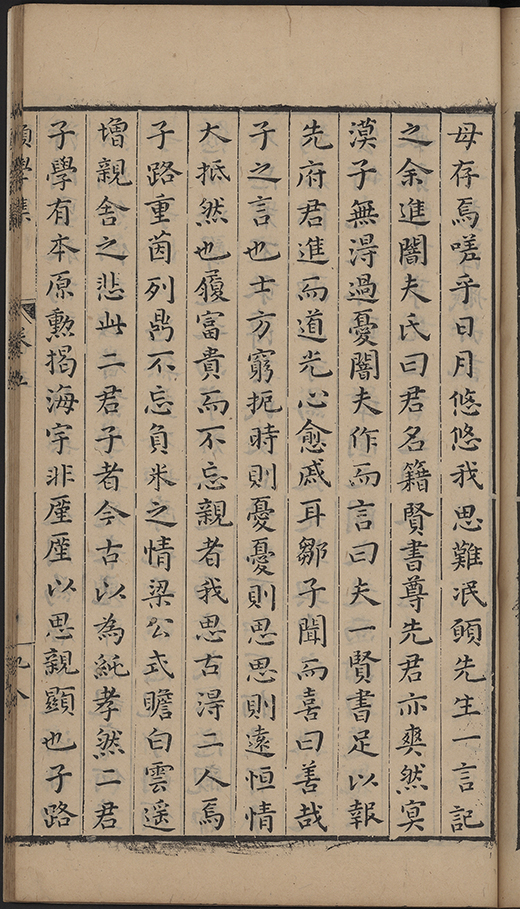 母存焉嗟乎日月悠悠我思難泯願先生一言記
之余進闇夫氏曰君名籍賢書尊先君亦奭然寘
漠子無淂過憂闇夫作而言曰夫一賢書足以報
先府君進而道光心愈戚耳鄒子聞而喜曰善哉
子之言也士方窮扼時則憂憂則思思則遠恒情
大抵然也履富貴而不忘親者我思古淂二人焉
子路重茵列鼎不忘負米之情梁公式瞻白雲遥
增親舍之悲此二君子者今古以為純孝然二君
子學有本原勲揭海宇非㕓㕓以思親顯也子路
願學集
卷五